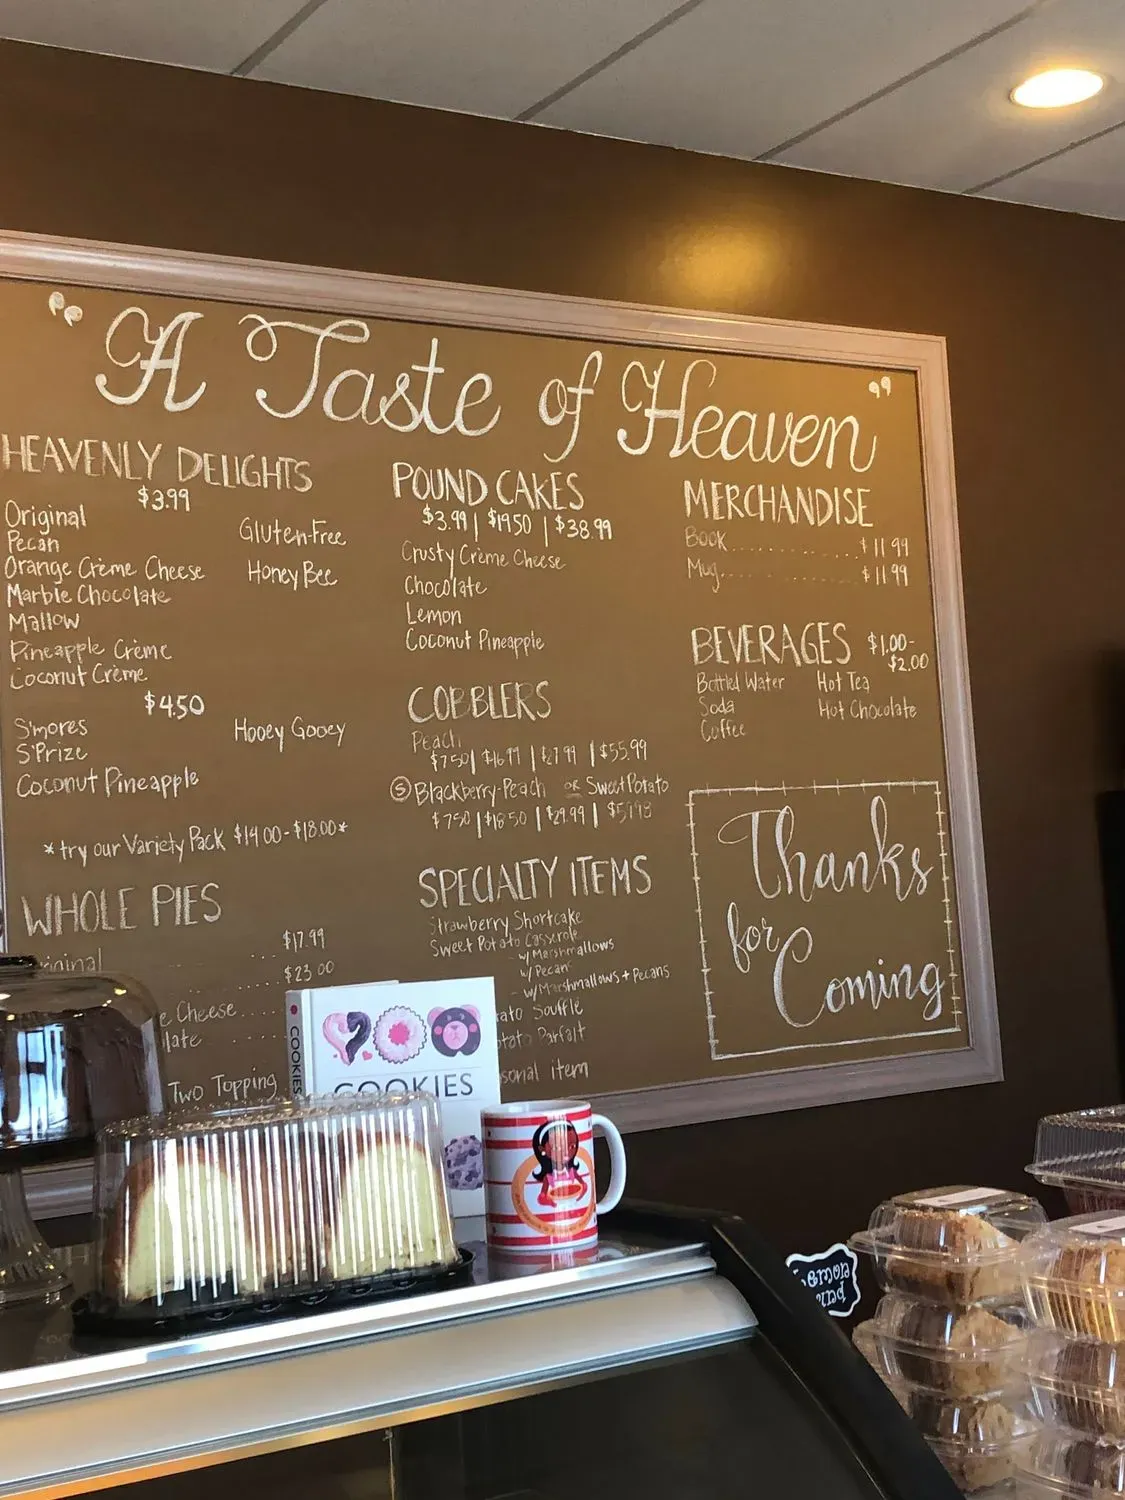 "A Taste of Heaven"
HEAVENLY DELIGHTS
$3.99
Original
Pecan
Orange Crème Cheese
Marble Chocolate
Mallow
Pineapple Crème
Coconut Crème
Gluten-Free
Honey Bee
$4.50
S'mores
S'Prize
Coconut Pineapple
Hooey Gooey
*try our Variety Pack $14.00-$18.00*
WHOLE PIES
$17.99
$23.00
Cheese....
Two Topping
POUND CAKES
$3.99 | $19.50 | $38.99
Crusty Crème Cheese
Chocolate
Lemon
Coconut Pineapple
COBBLERS
Peach
$7.50 | $16.99 | $27.99 | $55.99
Ⓢ Blackberry-Peach OR Sweet Potato
$7.50 | $18.50 | $29.99 |
SPECIALTY ITEMS
Strawberry Shortcake
Sweet Potato Casserole
- w/ Marshmallows
- w/ Pecans
- w/ Marshmallows + Pecans
Soufflé
Parfait
item
MERCHANDISE
Book..............$11.99
Mug..............$11.99
BEVERAGES $1.00-
$2.00
Bottled Water
Soda
Coffee
Hot Tea
Hot Chocolate
Thanks
for
Coming
COOKIES
COOKIES
Lemon